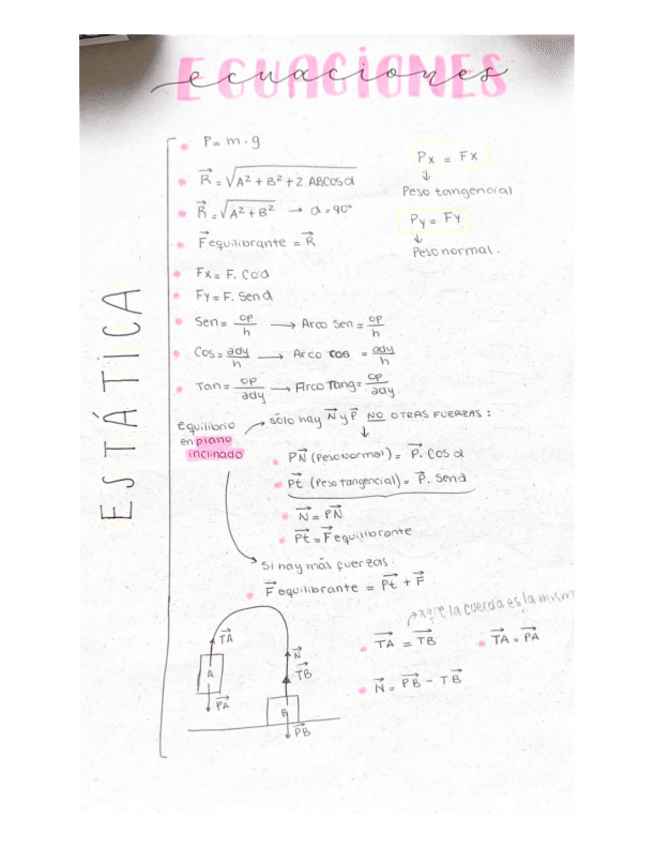 ECUACIONES
ecuaciones
ESTÁTICA
P = m . g
R⃗ = √A² + B² + 2. ABCosα
R⃗ = √A² + B² → α = 90°
F⃗ equilibrante = R⃗
Fx = F. Coα
Fy = F. Senα
Sen = op/h → Arco Sen = op/h
Cos = ady/h → Arco cos = ady/h
Tan = op/ady → Arco Tang = op/ady.
Px = Fx
↓
Peso tangencial
Py = Fy
↓
Peso normal.
equilibrio
en plano
inclinado
→ sólo hay N⃗ y P⃗ NO OTRAS FUERZAS:
↓
PN⃗ (Peso Normal) = P⃗. Cos α
Pt⃗ (Peso tangencial) = P⃗. Senα
N⃗ = PN⃗
Pt⃗ = F⃗ equilibrante
Si hay más fuerzas:
F⃗ equilibrante = Pt⃗ + F⃗
TA⃗
A
PA⃗
N⃗
TB⃗
B
PB⃗
la cuerda es la mism
TA⃗ = TB⃗
TA⃗ = PA⃗
N⃗ = PB⃗ - TB⃗